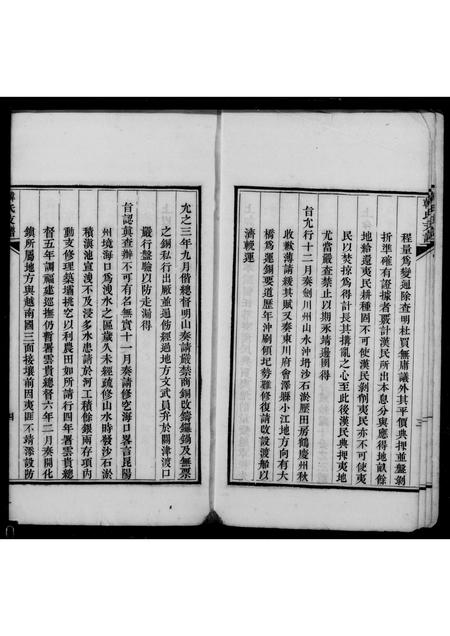 程量爲變通除查明杜買無庸議外其平價典押並盤剝
折準確有證據者覈計漢民所出本息分與應得地畝餘
地給還夷民耕種固不可使漢民剝削夷民亦不可使夷
民以焚掠爲得計長其搆亂之心至此後漢民典押夷地
尤當嚴查禁止以期永靖邊圉得
旨允行十二月奏劍川州山水沖坍沙石淤壓田房鶴慶州秋
收歉薄請緩其賦又奏東川府會澤縣小江地方向有大
橋爲運銅要道歷年沖刷領圮勢難修復請改設渡船以
濟輓運
允之三年九月偕總督明山奏請嚴禁商銅改鑄鑼鍋及無票
之銅私行出厰並通飭經過地方文武員弁於關津渡口
嚴行盤驗以防走漏得
旨認眞查辦不可有名無實十一月奏請修乾海口畧言昆陽
州境海口爲洩水之區歲久未經疏修山水時發沙石淤
積滇池宣洩不及浸多水患請於河工積餘銀兩存項內
動支修理築壩挑挖以利農田如所請行四年署雲貴總
督五年調福建巡撫仍暫署雲貴總督六年二月奏開化
鎮所屬地方與越南國三面接壤前因夷匪不靖添設防
韓氏支譜
四